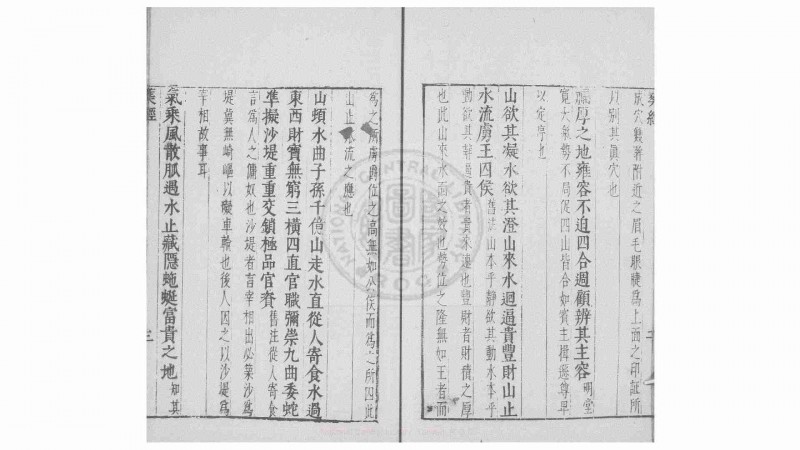 葬經
於穴幾著附近之眉毛眼睫爲上面之印証所
以別其眞穴也
藏厚之地雍容不迫四合週顧辨其主客明堂
寬大氣勢不局促四山皆合如賓主揖遜尊卑
以定序也
山欲其凝水欲其澄山來水迴逼貴豐財山止
水流虜王囚侯舊註山本乎靜欲其動水本乎
動欲其靜逼貴者貴來速也豐財者財積之厚
也此山來水迴之效也爵位之隆無如王者而
爲之所虜爵位之高無如公侯而爲之所囚此
山止流之應也
山頓水曲子孫千億山走水直從人寄食水過
東西財寶無窮三橫四直官職彌崇九曲委蛇
準擬沙堤重重交鎖極品官資舊注從人寄食
言爲人之傭奴也沙堤者言宰相出必築沙爲
堤冀無崎嶇以礙車輪也後人因之以沙堤爲
宰相故事耳
氣乘風散脈遇水止藏隱虵蜒富貴之地知其
葬經
三